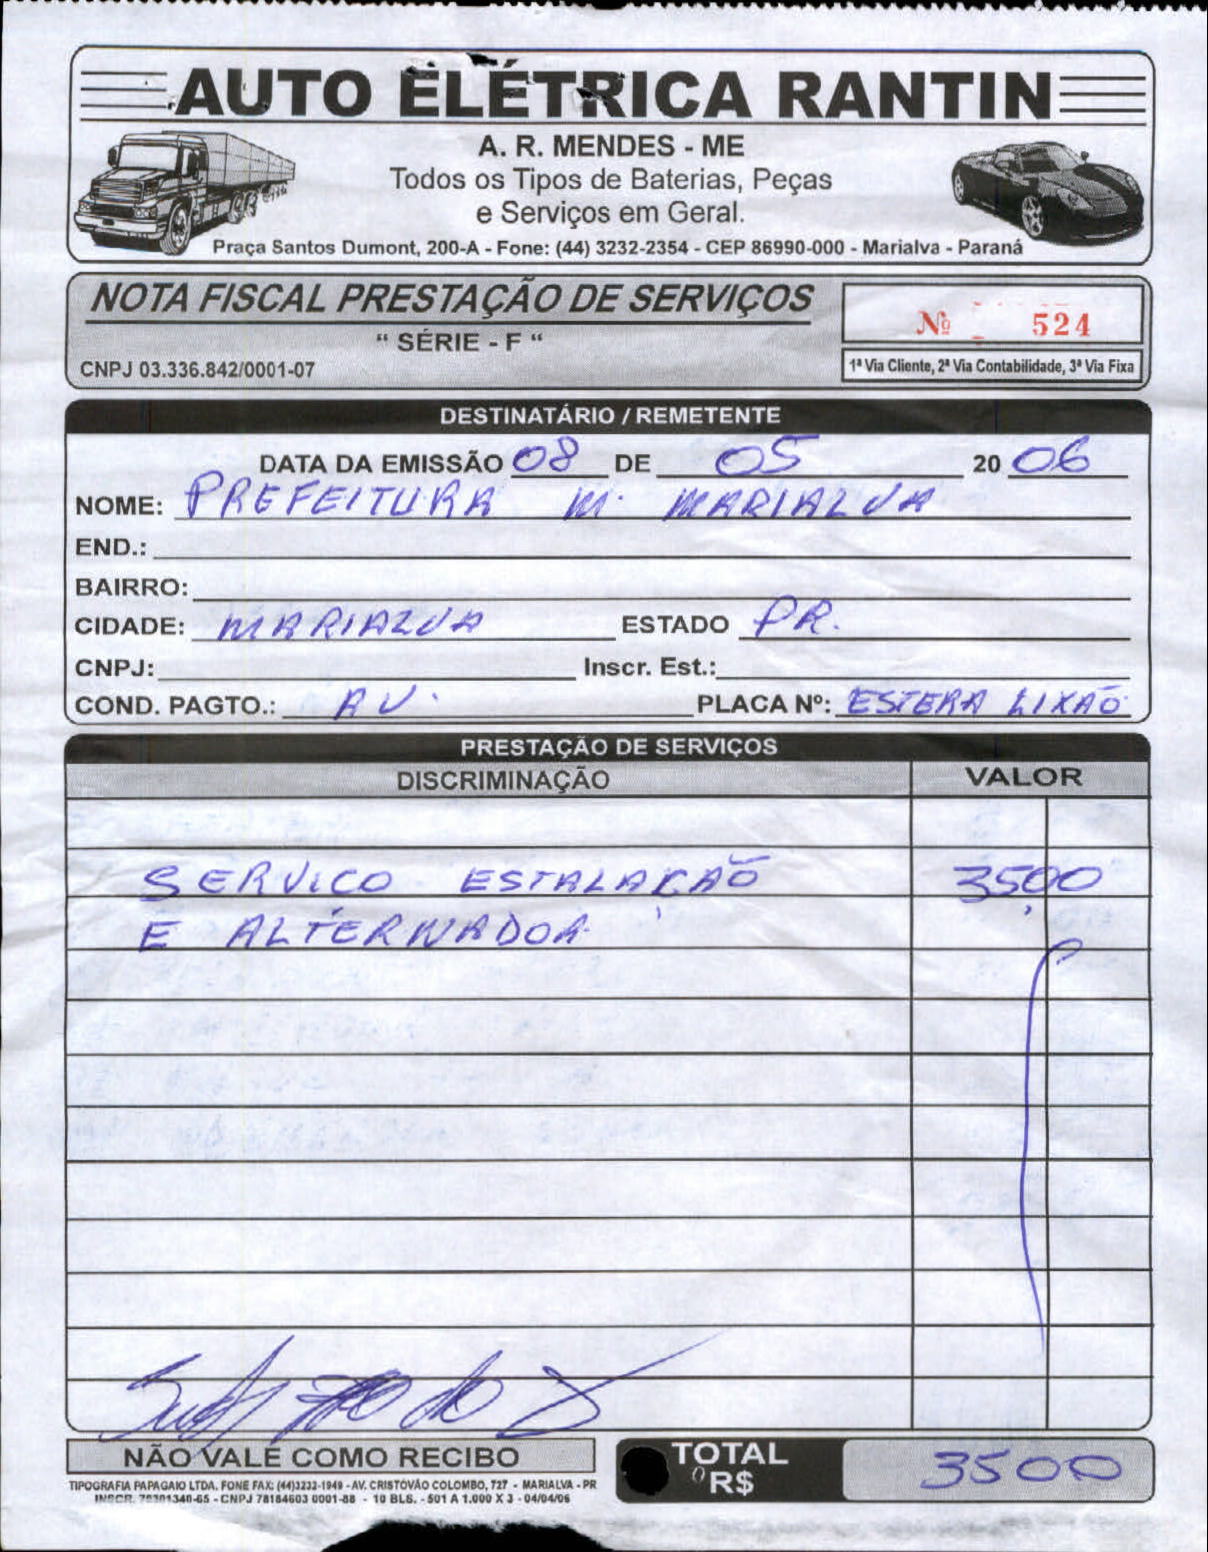 AUTO ELÉTRICA RANTIN
A. R. MENDES - ME
Todos os Tipos de Baterias, Peças
e Serviços em Geral.
Praça Santos Dumont, 200-A - Fone: (44) 3232-2354 - CEP 86990-000 - Marialva - Paraná
NOTA FISCAL PRESTAÇÃO DE SERVIÇOS
Nº 524
“ SÉRIE - F “
CNPJ 03.336.842/0001-07
1ª Via Cliente, 2ª Via Contabilidade, 3ª Via Fixa
DESTINATÁRIO / REMETENTE
DATA DA EMISSÃO 08 DE 05 20 06
NOME: PREFEITURA M. MARIALVA
END.:
BAIRRO:
CIDADE: MARIALVA ESTADO PR.
CNPJ: Inscr. Est.:
COND. PAGTO.: AV. PLACA Nº: ESTERA LIXÃO
PRESTAÇÃO DE SERVIÇOS
DISCRIMINAÇÃO VALOR
SERVICO ESTALAÇÃO 3500
E ALTERNADOR
NÃO VALE COMO RECIBO
TOTAL R$ 3500
TIPOGRAFIA PAPAGAIO LTDA. FONE FAX: (44)3232-1949 - AV. CRISTÓVÃO COLOMBO, 727 - MARIALVA - PR
INSCR. 70301340-65 - CNPJ 78184603 0001-88 - 10 BLS. - 501 A 1.000 X 3 - 04/04/06